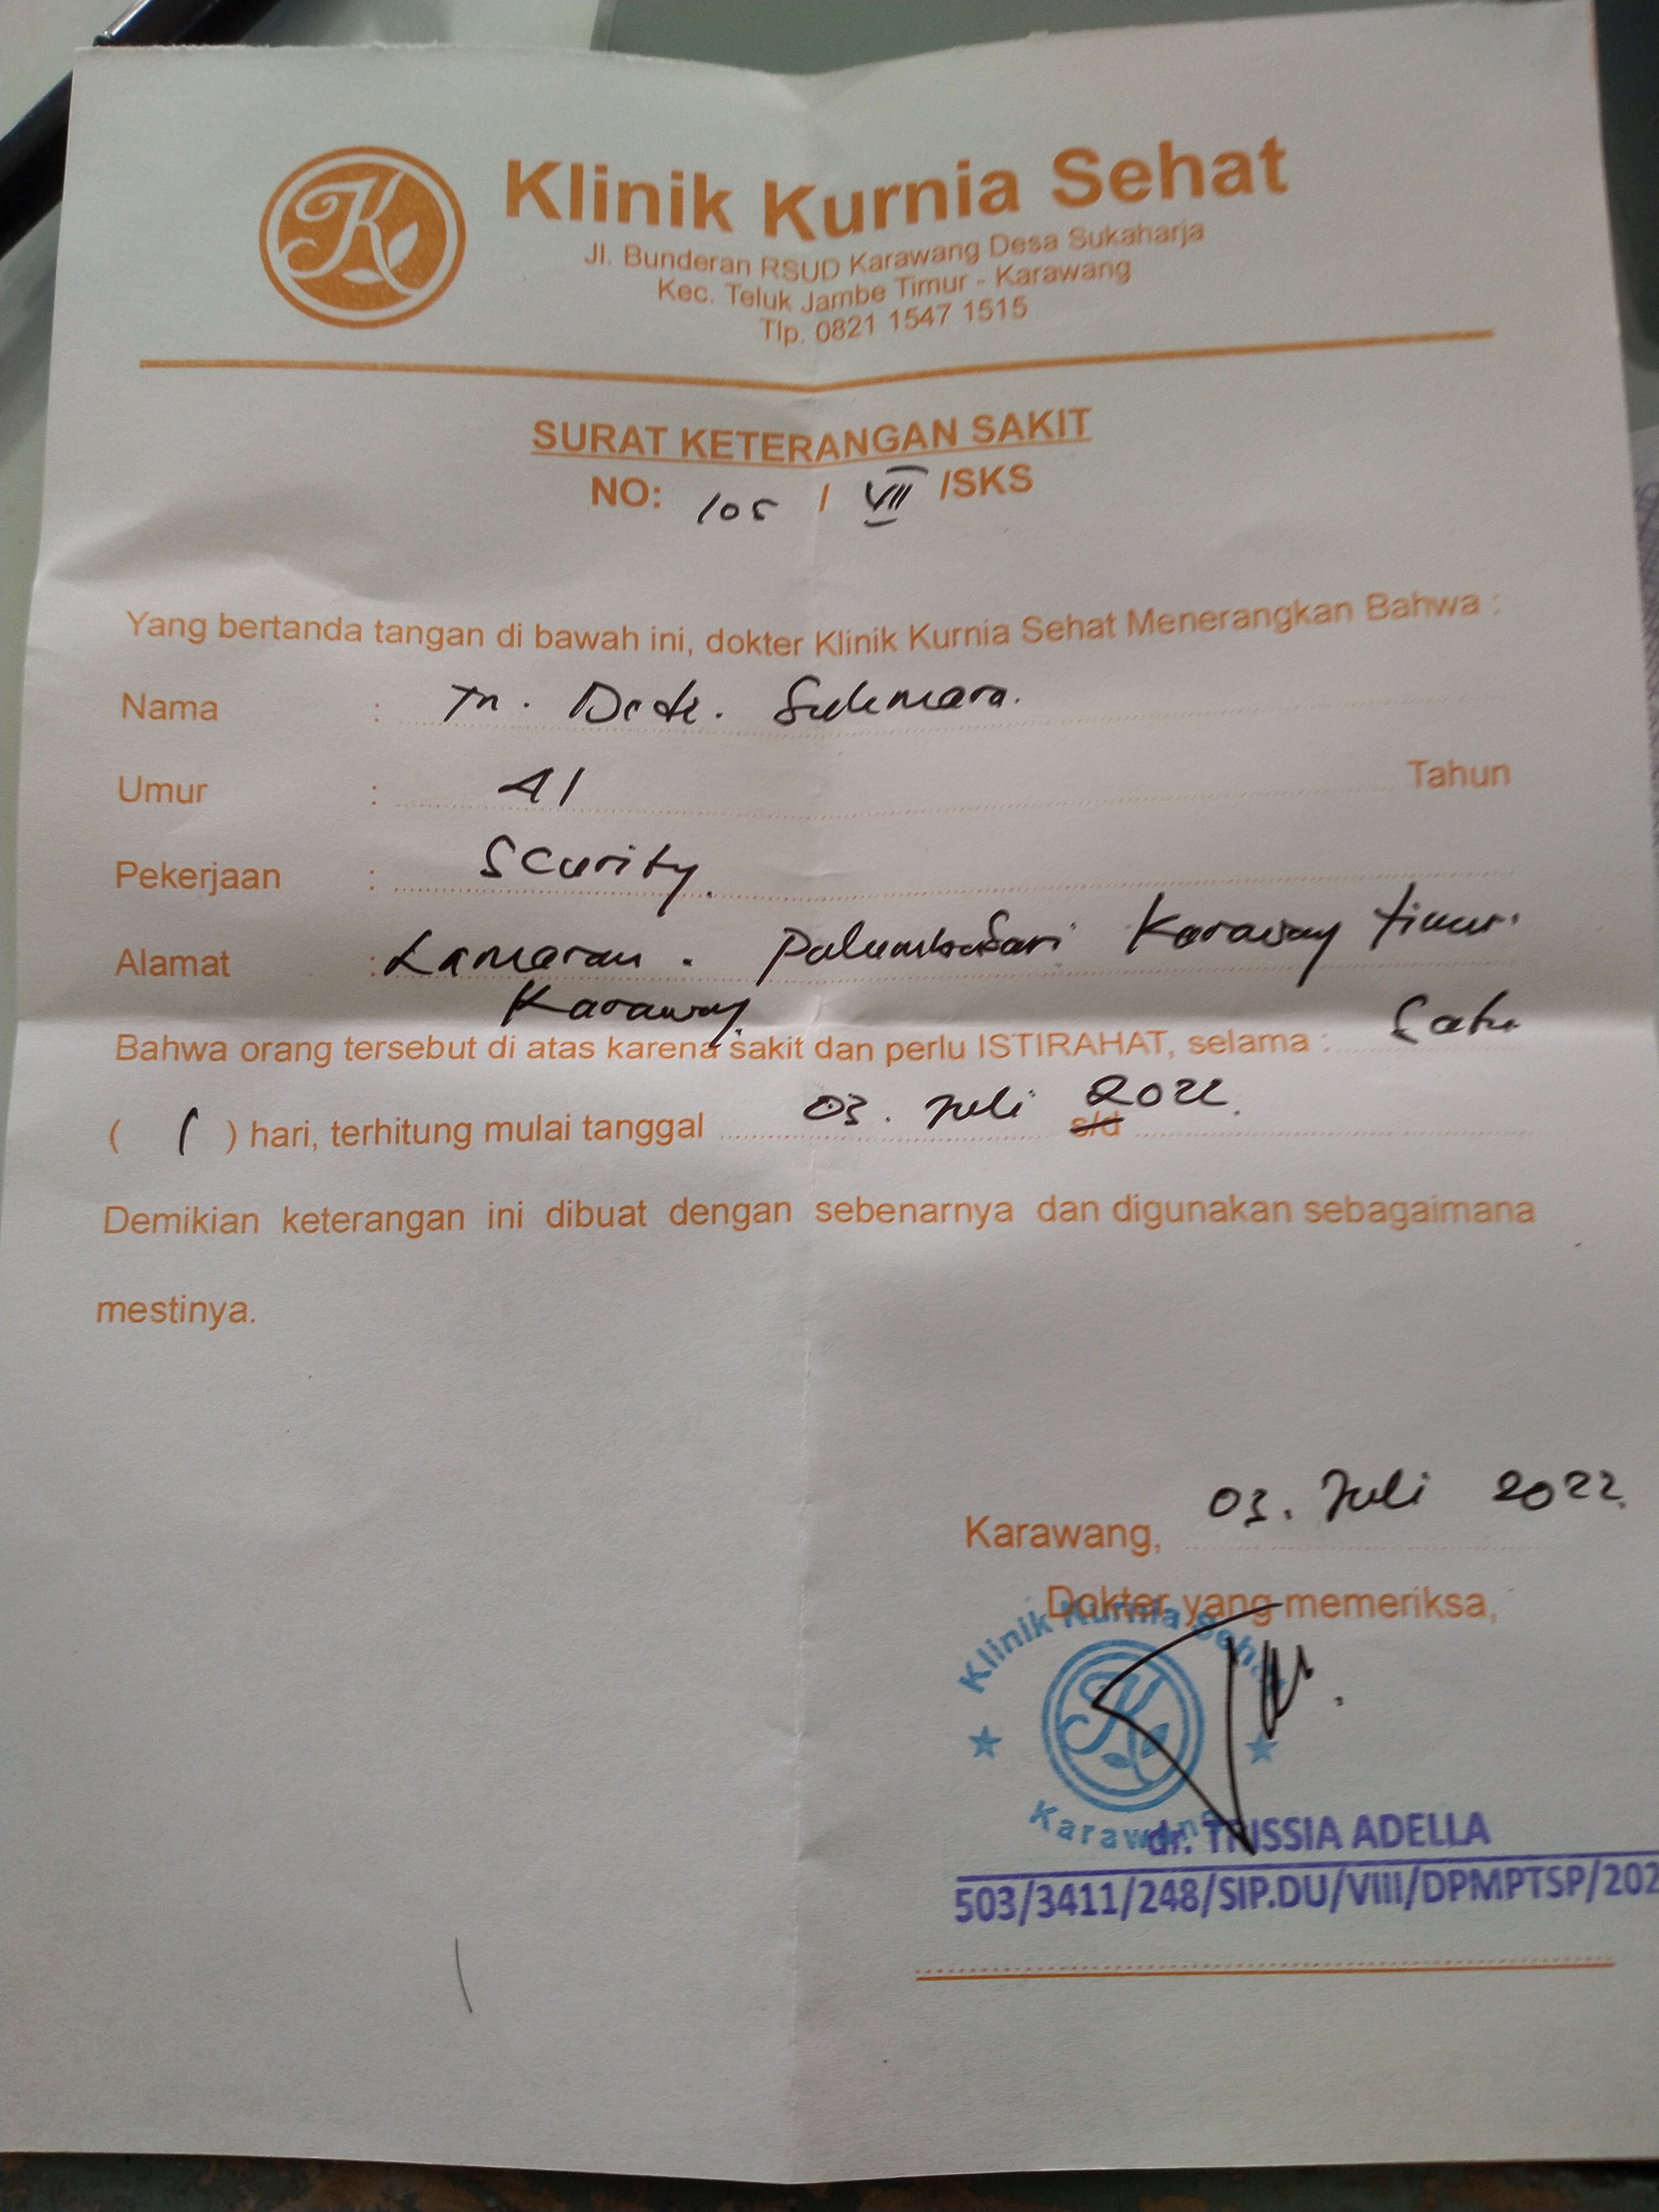 Klinik Kurnia Sehat
Jl. Bunderan RSUD Karawang Desa Sukaharja
Kec. Teluk Jambe Timur - Karawang
Tlp. 0821 1547 1515
SURAT KETERANGAN SAKIT
NO: 105 / VII /SKS
Yang bertanda tangan di bawah ini, dokter Klinik Kurnia Sehat Menerangkan Bahwa :
Nama : Tn. Sukmara.
Umur : 41 Tahun
Pekerjaan : Scurity.
Alamat : Lamaran. Palumbonsari Karawang timur.
Karawang.
Bahwa orang tersebut di atas karena sakit dan perlu ISTIRAHAT, selama : Satu
( 1 ) hari, terhitung mulai tanggal 03. Juli s/d 2022.
Demikian keterangan ini dibuat dengan sebenarnya dan digunakan sebagaimana
mestinya.
Karawang, 03. Juli 2022.
Dokter yang memeriksa,
Klinik Kurnia Sehat
Karawang
dr. TRISSIA ADELLA
503/3411/248/SIP.DU/VIII/DPMPTSP/202